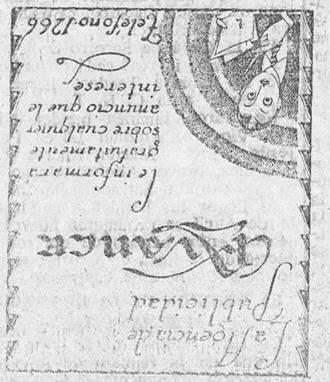 La Agencia de
Publicidad
AVANCE
le informara
gratuitamente
sobre cualquier
anuncio que le
interese
Teléfono 1266